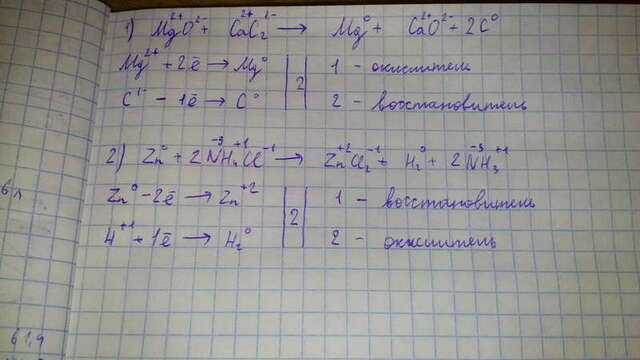 1) Mg²⁺O²⁻ + Ca²⁺C₂¹⁻ → Mg⁰ + Ca²⁺O²⁻ + 2C⁰
Mg²⁺ + 2ē → Mg⁰ | 2 | 1 - окислитель
C¹⁻ - 1ē → C⁰ | 2 - восстановитель
2) Zn⁰ + 2N⁻³H₄⁺¹Cl⁻¹ → Zn⁺²Cl₂⁻¹ + H₂⁰ + 2N⁻³H₃⁺¹
6 л
Zn⁰ - 2ē → Zn⁺² | 2 | 1 - восстановитель
H⁺¹ + 1ē → H₂⁰ | 2 - окислитель
61,4